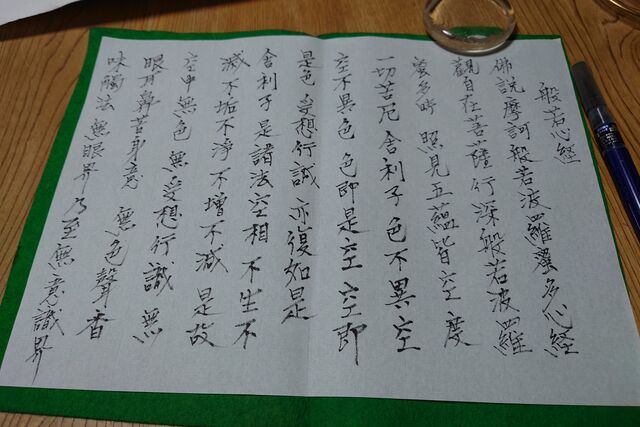 般若心経
佛説摩訶般若波羅蜜多心経
觀自在菩薩行深般若波羅
蜜多時 照見五蘊皆空 度
一切苦厄 舍利子 色不異空
空不異色 色即是空 空即
是色 受想行識 亦復如是
舍利子 是諸法空相 不生不
滅 不垢不淨 不增不減 是故
空中無色 無受想行識 無
眼耳鼻舌身意 無色聲香
味觸法 無眼界 乃至無意識界